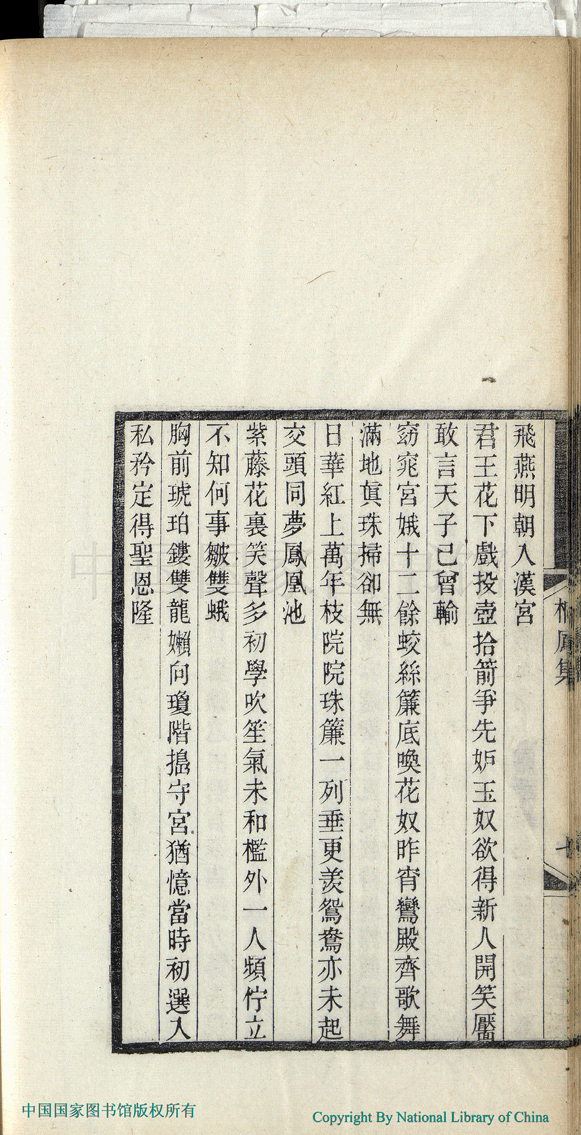 飛燕明朝入漢宮
君王花下戲投壺拾箭爭先妒玉奴欲得新人開笑靨
敢言天子已曾輸
窈窕宮娥十二餘蛟絲簾底喚花奴昨宵鸞殿齊歌舞
滿地眞珠掃卻無
日華紅上萬年枝院院珠簾一列垂更羨鴛鴦亦未起
交頭同夢鳳凰池
紫藤花裏笑聲多初學吹笙氣未和檻外一人頻佇立
不知何事皺雙蛾
胸前琥珀鏤雙龍嬾向瓊階搗守宮猶憶當時初選入
私矜定得聖恩隆
中国国家图书馆版权所有
Copyright By National Library of China